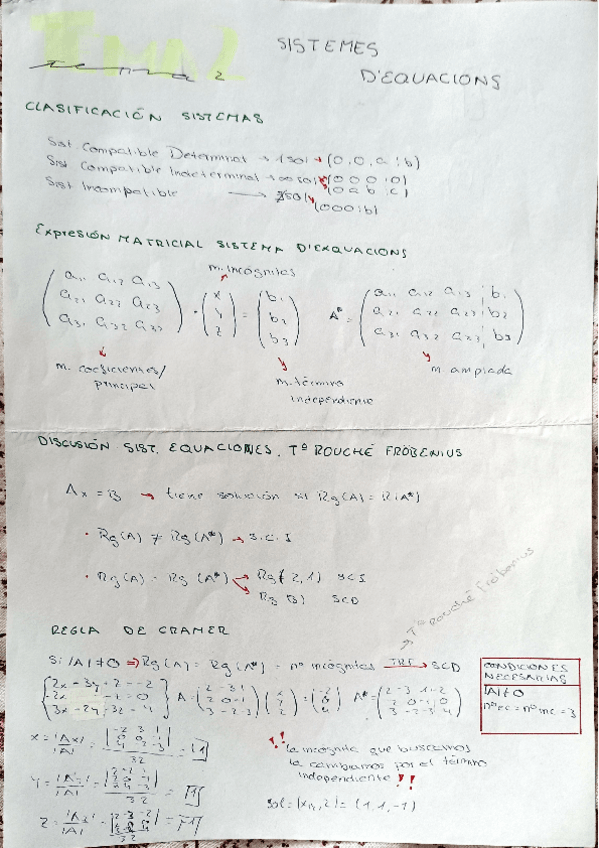 TEMA 2
tema 2
SISTEMES
D'EQUACIONS
CLASIFICACIÓN SISTEMAS
Sist. Compatible Determinat → 1 sol → (0, 0, a ¦ b)
Sist. Compatible Indeterminat → ∞ sol (0 0 0 ¦ 0)
(0 a b ¦ c)
Sist Incompatible → ∄ sol
(0 0 0 ¦ b)
EXPRESIÓN MATRICIAL SISTEMA D'EXQUACIONS
m. incógnitas
(a11 a12 a13) (x) (b1) (a11 a12 a13 ¦ b1)
(a21 a22 a23) · (y) = (b2) A* = (a21 a22 a23 ¦ b2)
(a31 a32 a33) (z) (b3) (a31 a32 a33 ¦ b3)
m. coeficientes/
principal
m. término
independiente
m. ampiada
DISCUSIÓN SIST. EQUACIONES. Tª ROUCHÉ FRÖBENIUS
Ax = B → tiene solución si Rg(A) = R(A*)
· Rg(A) ≠ Rg(A*) → S.C.I
· Rg(A) = Rg(A*) → Rg(2,1) SCI
Rg(3) SCD
Tª Rouché Fröbenius
REGLA DE CRAMER
Si |A| ≠ 0 ⇒ Rg(A) = Rg(A*) = nº incógnitas → SCD
CONDICIONES
NECESARIAS
|A| ≠ 0
nº ec = nº inc = 3
2x - 3y + z = -2
3x - 2y - 3z = 4
x = |Ax| / |A| =
32
la incógnita que buscamos
la cambiamos por el término
independiente!!
sol = (x, y, z) = (1, 1, -1)